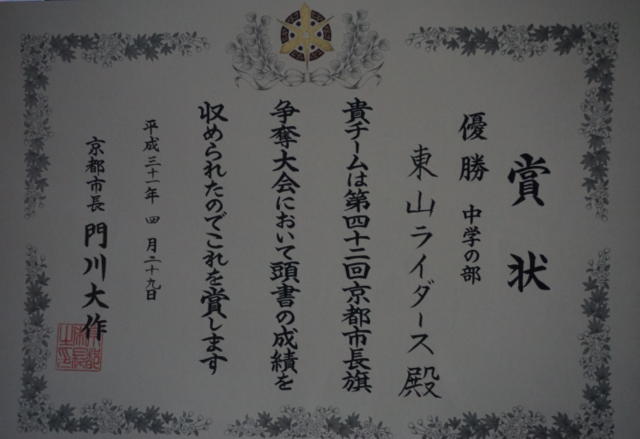 賞状
優勝 中学の部
東山ライダース殿
貴チームは第四十二回京都市長旗
争奪大会において頭書の成績を
収められたのでこれを賞します
平成三十一年 四月二十九日
京都市長 門川大作